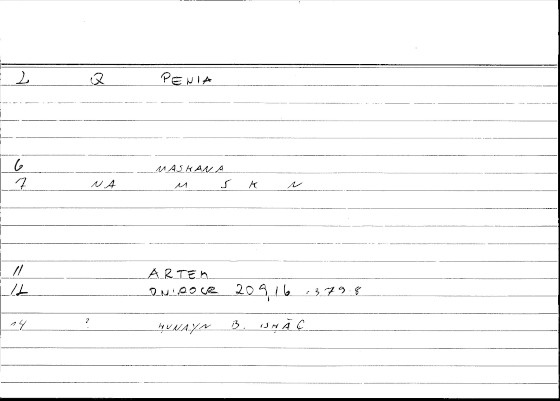 2 Q PENIA
6 MASKANA
7 NA M S K N
11 ARTEM
12 ONIROCR 209,16 = 379 8
14 ? ḤUNAYN B. ISḤĀC